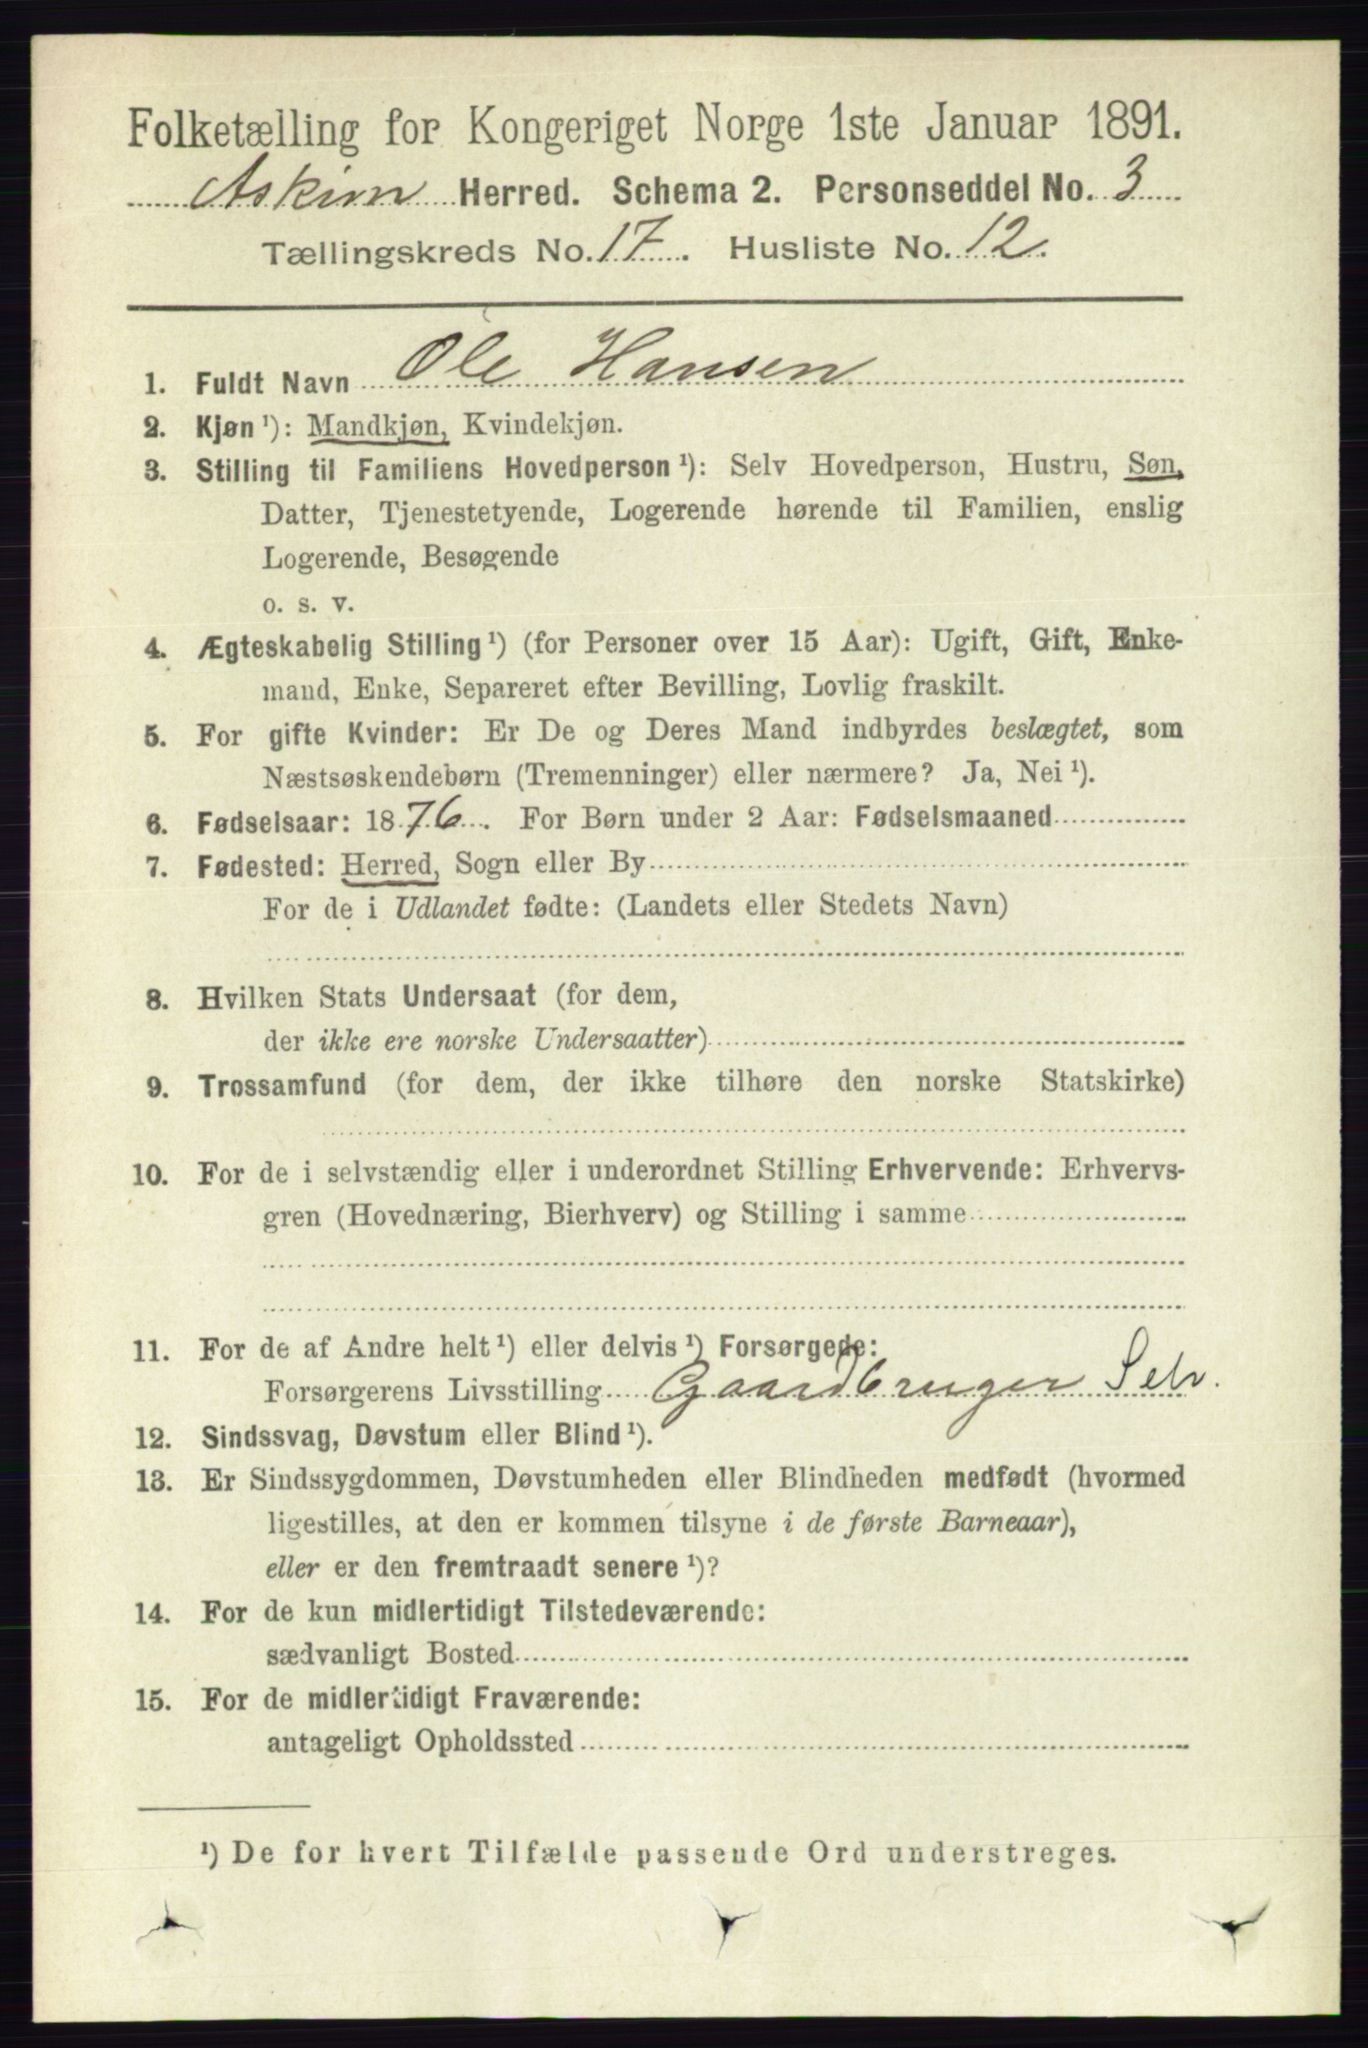 Folketælling for Kongeriget Norge 1ste Januar 1891.
Askim Herred. Schema 2. Personseddel No. 3
Tællingskreds No. 17. Husliste No. 12.
1. Fuldt Navn Ole Hansen
2. Kjøn ¹): Mandkjøn, Kvindekjøn.
3. Stilling til Familiens Hovedperson ¹): Selv Hovedperson, Hustru, Søn,
Datter, Tjenestetyende, Logerende hørende til Familien, enslig
Logerende, Besøgende
o. s. v.
4. Ægteskabelig Stilling ¹) (for Personer over 15 Aar): Ugift, Gift, Enke-
mand, Enke, Separeret efter Bevilling, Lovlig fraskilt.
5. For gifte Kvinder: Er De og Deres Mand indbyrdes beslægtet, som
Næstsøskendebørn (Tremenninger) eller nærmere? Ja, Nei ¹).
6. Fødselsaar: 1876. For Børn under 2 Aar: Fødselsmaaned
7. Fødested: Herred, Sogn eller By
For de i Udlandet fødte: (Landets eller Stedets Navn)
8. Hvilken Stats Undersaat (for dem,
der ikke ere norske Undersaatter)
9. Trossamfund (for dem, der ikke tilhøre den norske Statskirke)
10. For de i selvstændig eller i underordnet Stilling Erhvervende: Erhvervs-
gren (Hovednæring, Bierhverv) og Stilling i samme
11. For de af Andre helt ¹) eller delvis ¹) Forsørgede:
Forsørgerens Livsstilling Gaardbruger Selv.
12. Sindssvag, Døvstum eller Blind ¹).
13. Er Sindssygdommen, Døvstumheden eller Blindheden medfødt (hvormed
ligestilles, at den er kommen tilsyne i de første Barneaar),
eller er den fremtraadt senere ¹)?
14. For de kun midlertidigt Tilstedeværende:
sædvanligt Bosted
15. For de midlertidigt Fraværende:
antageligt Opholdssted
¹) De for hvert Tilfælde passende Ord understreges.